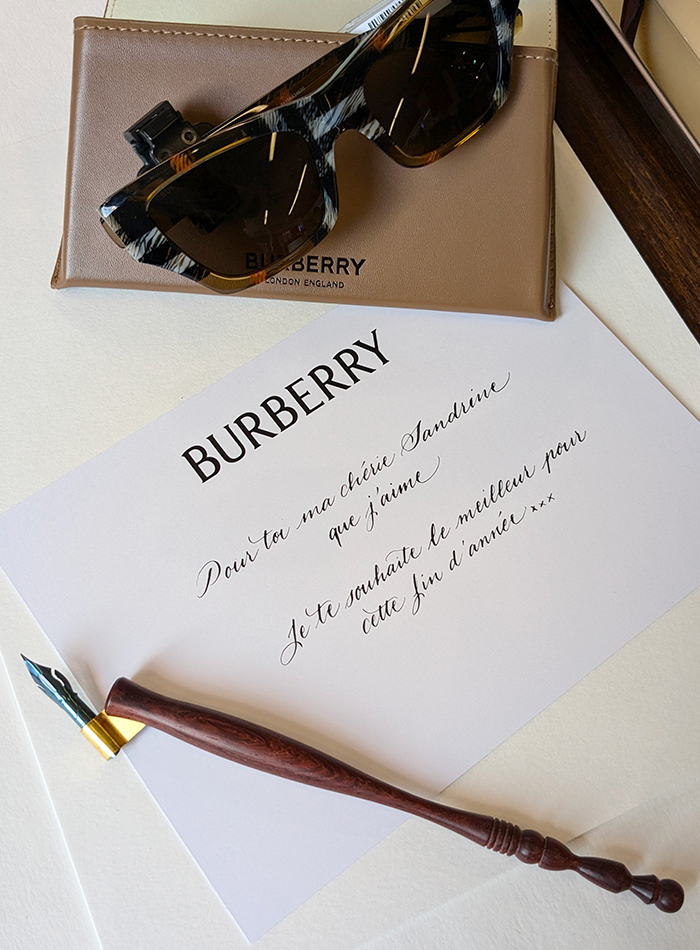 BURBERRY
LONDON ENGLAND
BURBERRY
Pour toi ma chérie Sandrine
que j'aime
Je te souhaite le meilleur pour
cette fin d'année xxx